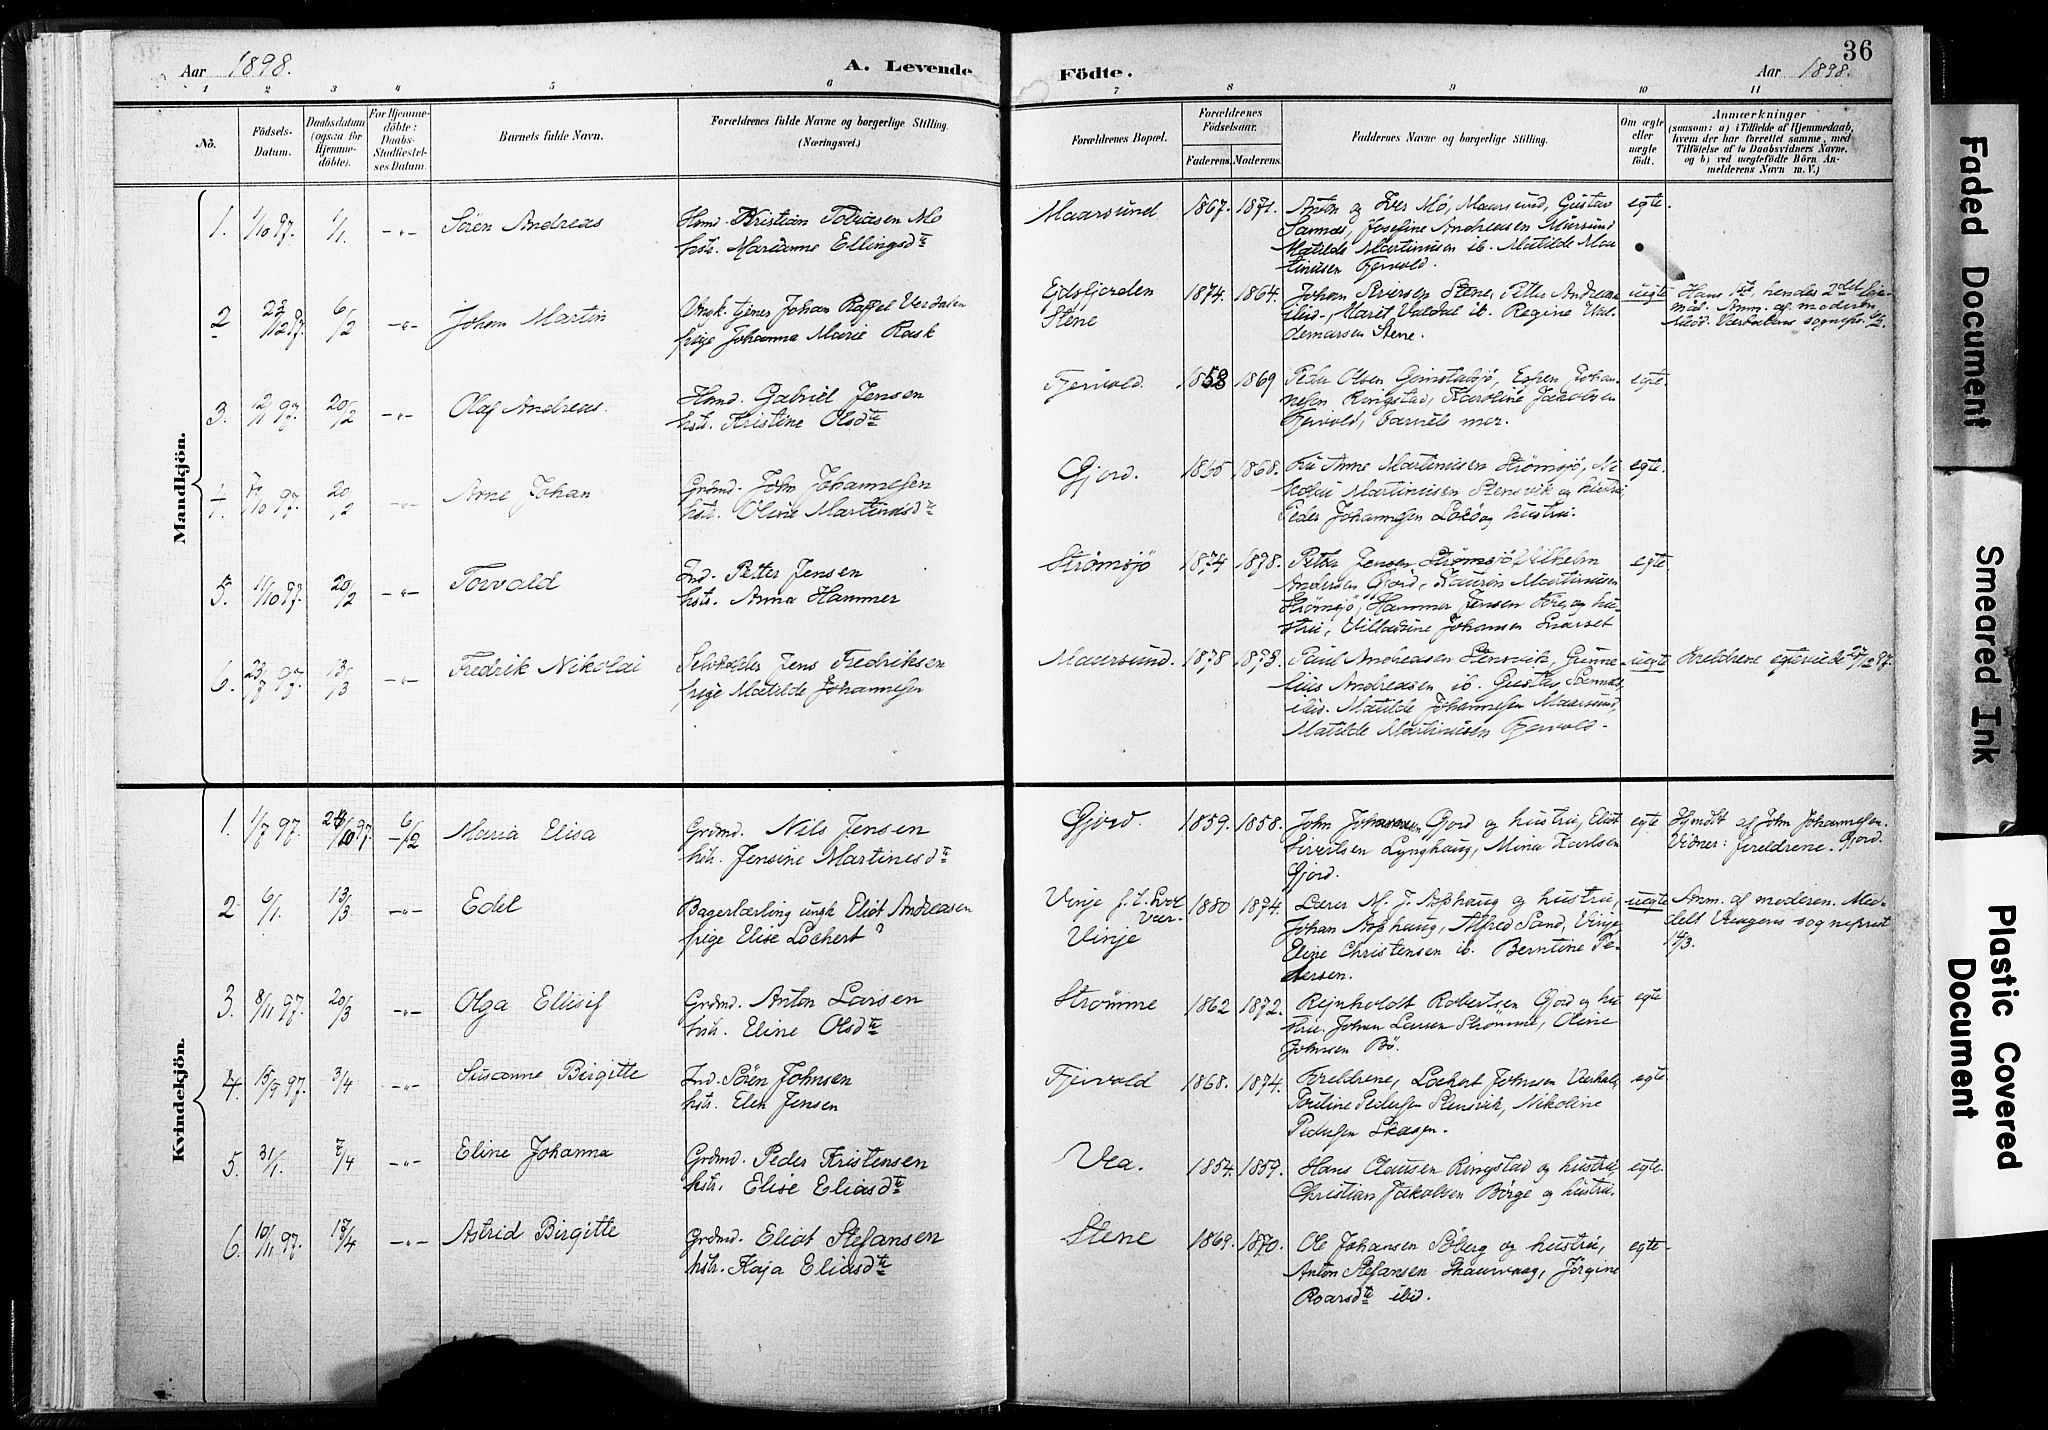 Aar 1898.
A. Levende
Födte.
36
Aar 1898.
1 2 3 4 5 6 7 8 9 10 11
No.
Födsels-
Datum.
Daabsdatum
(ogsaa for
Hjemme-
döbte).
For Hjemme-
döbte:
Daabs-
Stadfæstel-
ses Datum
Barnets fulde Navn.
Forældrenes fulde Navne og borgerlige Stilling.
(Næringsvei.)
Forældrenes Bopæl.
Forældrenes
Födselsaar.
Faderens. Moderens.
Faddernes Navne og borgerlige Stilling.
Om ægte
eller
uægte
födt.
Anmærkninger
(saasom: a) i Tilfælde af Hjemmedaab,
hvem der har forrettet samme, med
Tilföielse af to Daabsvidners Navne.
og b) ved uægtefödte Börn An-
melderens Navn m. V.)
Mandkjön.
1. 1/10 97. 1/1. -"- Sören Andreas
Kristian Tobiasen Mo
hstr. Marianne Ellingsdtr
Maarsund 1867. 1871.
Anton og Iver Mo, Maarsund, Gustav
Sannes, Josefine Andreasen Maarsund
Matilde Martinusen ib. Matilde Mar-
tinusen Fjervold.
egte
2 6/2 -"- Johan Martin
tjener Johan Verdalen
pige Johanna Marie Rask
Eidsfjorden
Stene
1874. 1864.
Johan Siversen Stene, Petter Andreas
ibid, ib. Regine Val-
demarsen Stene.
uegte
Hans 1ste, hendes 2det leie-
maal. Anm. af moderen
3. 12/1 97 20/2 -"- Olaf Andreas.
Gabriel Jensen
hstr. Kristine Olsdtr
Fjervold. 1858 1869
Peder Olsen Grimstadsjö, Espen Johan-
nesen Ringstad, Karoline Jakobsen
Fjervold, barnets mor.
egte.
4. 97. 20/2 -"- Arne Johan
Grdmd. John Johannesen
hstr. Oline Martinusdtr
Gjord. 1865 1868.
Anne Martinusen Strömsjö,
Martinusen Stensvik og hustru
Peder Johannesen og hustru.
egte.
5. 4/10 97. 20/2 -"- Torvald
Ind. Petter Jensen
hstr. Anna Hammer
Strömsjö 1874 1878.
Petter Jensen Strömsjö, Vilhelm
Andersen Gjord, Martinusen
Strömsjö, Hammer Jensen Fore, og hu-
stru, Johansen
egte
6. 23/7 97. 13/3 -"- Fredrik Nikolai
Jens Fredriksen
pige Matilde Johannesen
Maarsund. 1878 1873.
Paul Andreasen Stensvik, Grune-
lius Andreasen ib. Gustav Sannes,
ibid. Matilde Johannesen Maarsund,
Matilde Martinusen Fjervold.
uegte
Foreldrene egteviede 27/12 97.
Kvindekjön.
1. 1/7 97. 24/10 97. 6/2 Maria Elisa
Grdmd. Nils Jensen
hstr. Jensine Martinesdtr
Gjord. 1859. 1858.
John Johannesen Gjord og hustru, Eliot
Sivertsen Lynghaug, Mina Karlsen
Gjord.
egte
Hjmdbt. af John Johannesen.
Vidner: foreldrene. Gjord.
2 6/1. 13/3 -"- Edel
Bagerlærling ungk Eliot Andreasen
pige Elise Lochert
Vinje
Vinje
1880 1874.
Lærer M. J. Asphaug og hustru,
Johan Asphaug, Alfred Sand, Vinje,
Eline Christensen ib. Berntine Pe-
dersen.
uegte
Anm. af moderen. Med-
delt Vaagens sogneprest
3. 8/11 97. 20/3 -"- Olga Elisif
Grdmd. Anton Larsen
hstr. Eline Olsdtr
Strömme 1862 1872.
Rejnholdt Robertsen Gjord og hu-
stru. Johan Larsen Strömme, Oline
Johnsen Bö.
egte
4. 15/9 97. 3/4 -"- Susanne Birgitte
Ind. Sören Johnsen
hstr. Elen Jensen
Fjervold 1868. 1874.
Foreldrene, Lochert Johnsen
Pauline Pedersen Stensvik, Nikoline
Pedersen Skagen.
egte
5. 31/1. 7/4 -"- Eline Johanna
Grdmd. Peder Kristensen
hstr. Elise Eliasdtr
Vea. 1854. 1859.
Hans Clausen Ringstad og hustru,
Christian Jakobsen Börge og hustru.
egte.
6. 10/11 97. 17/4 -"- Astrid Birgitte
Grdmd. Eliot Stefansen
hstr. Kaja Eliasdtr
Stene 1869. 1870.
Ole Johansen Söberg og hustru,
Anton Stefansen Skaarvaag, Jörgine
Roarsdtr ibid.
egte
Faded Document
Smeared Ink
Plastic Covered
Document